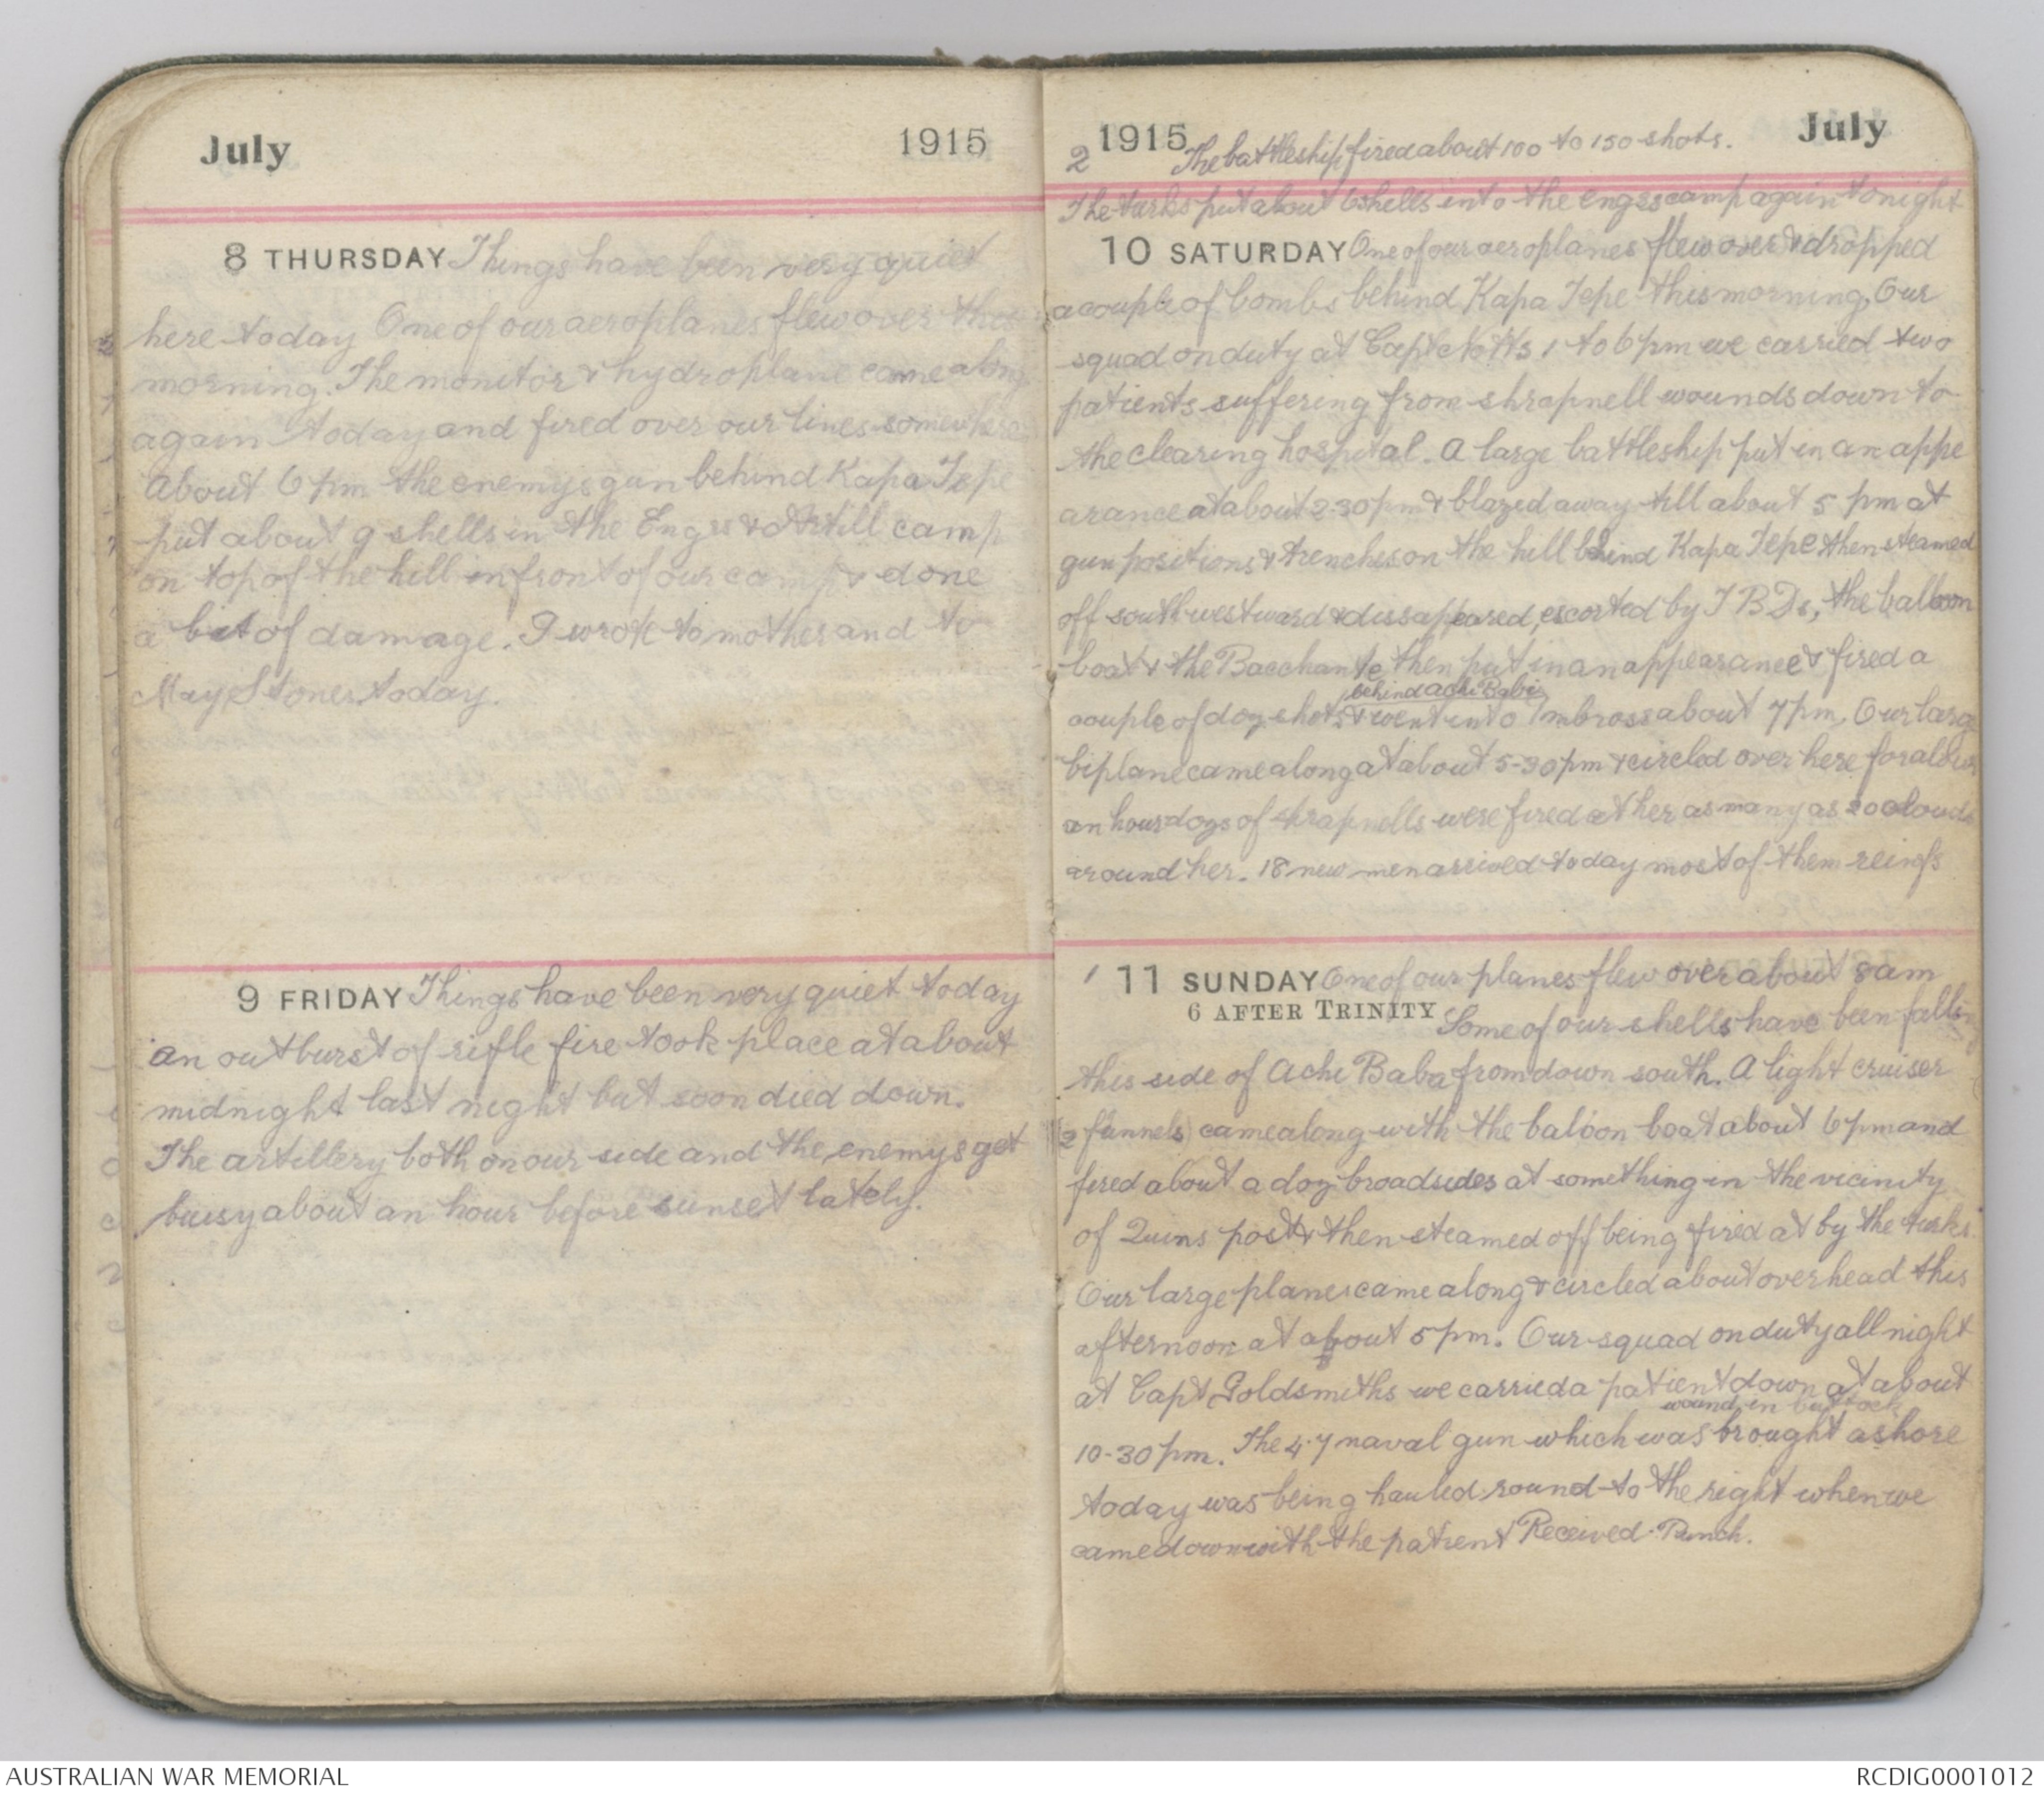 July 1915
8 THURSDAY Things have been very quiet
here today One of our aeroplanes flew over this
morning. The monitor & hydroplane came along
again today and fired over our lines somewhere
about 6 pm the enemys gun behind Kapa Tepe
put about 9 shells in the Engrs & Artill camp
on top of the hill in front of our camp & done
a bit of damage. I wrote to mother and to
May Stones today.
9 FRIDAY Things have been very quiet today
an outburst of rifle fire took place at about
midnight last night but soon died down.
The artillery both on our side and the enemys get
buisy about an hour before sunset lately.
1915 July
2 The battleship fired about 100 to 150 shots.
The turks put about 6 shells into the engrs camp again tonight
10 SATURDAY One of our aeroplanes flew over & dropped
a couple of bombs behind Kapa Tepe this morning, Our
squad on duty at Capt Notts 1 to 6 pm we carried two
patients suffering from shrapnell wounds down to
the clearing hospital. A large battleship put in an appe
arance at about 2-30 pm & blazed away till about 5 pm at
gun positions & trenches on the hill behind Kapa Tepe then steamed
off south westward & dissappeared, escorted by T B Ds, the balloon
boat & the Bacchante then put in an appearance & fired a
behind Achi Baba
couple of doz shots & went into Imbross about 7 pm. Our large
biplane came along at about 5-30 pm & circled over here for about
an hour dozs of shrapnells were fired at her as many as 20 clouds
around her. 18 new men arrived today most of them reinfs
1 11 SUNDAY One of our planes flew over about 8 am
6 AFTER TRINITY Some of our shells have been falling
this side of Achi Baba from down south. A light cruiser
(2 funnels) came along with the baloon boat about 6 pm and
fired about a doz broadsides at something in the vicinity
of Quins post & then steamed off being fired at by the turks.
Our large planes came along & circled about overhead this
afternoon at about 5 pm. Our squad on duty all night
at Capt Goldsmiths we carried a patient down at about
wound in buttock
10-30 pm. The 4.7 naval gun which was brought ashore
today was being hauled round to the right when we
came down with the patient Received Punch.
AUSTRALIAN WAR MEMORIAL RCDIG0001012